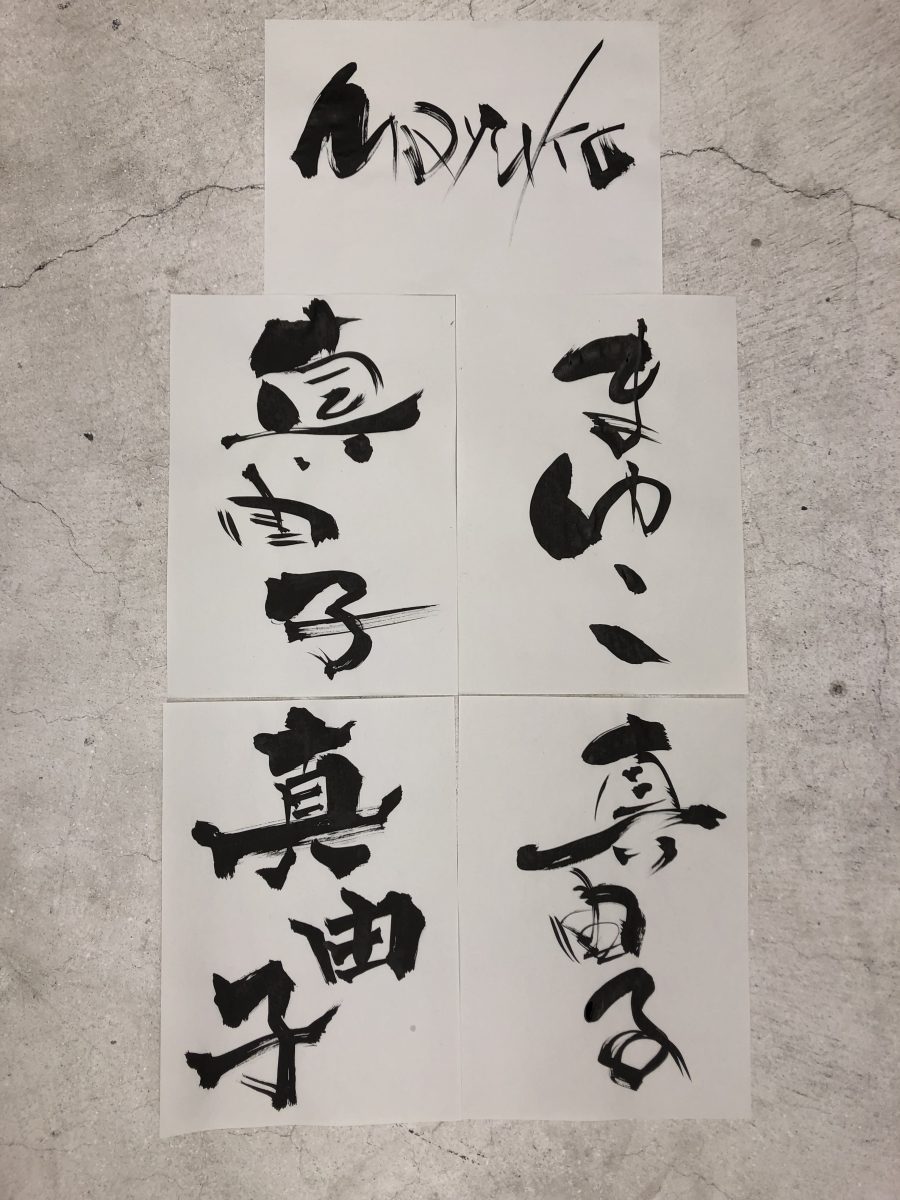 mayuko
真由子
まゆこ
真由子
真由子